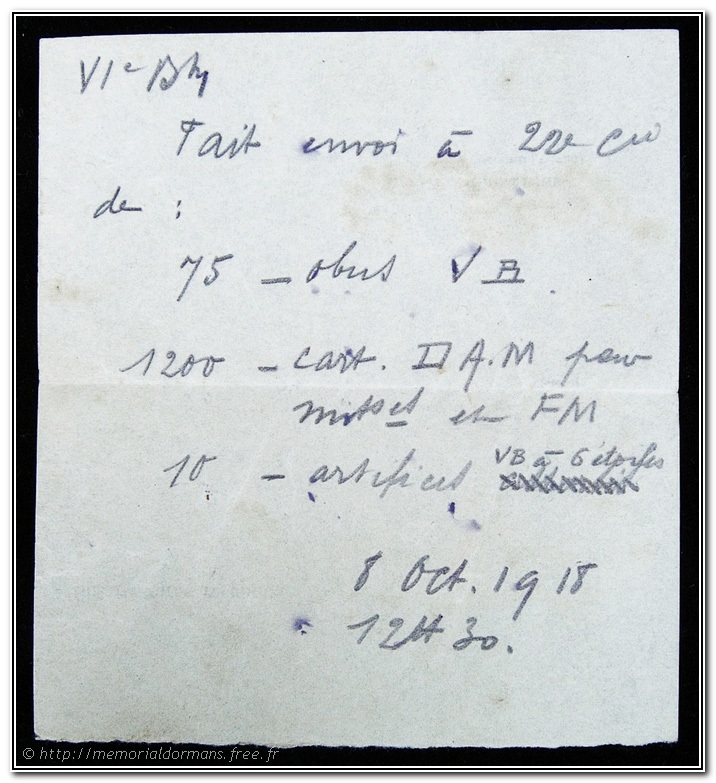 VIe Bn
Fait envoi à 22e Cie
de :
75 – obus VB
1200 – cart. D A.M pour
mitses et FM
10 – artifices VB à 6 étoiles
8 Oct. 1918
12H 30.
© http://memorialdormans.free.fr